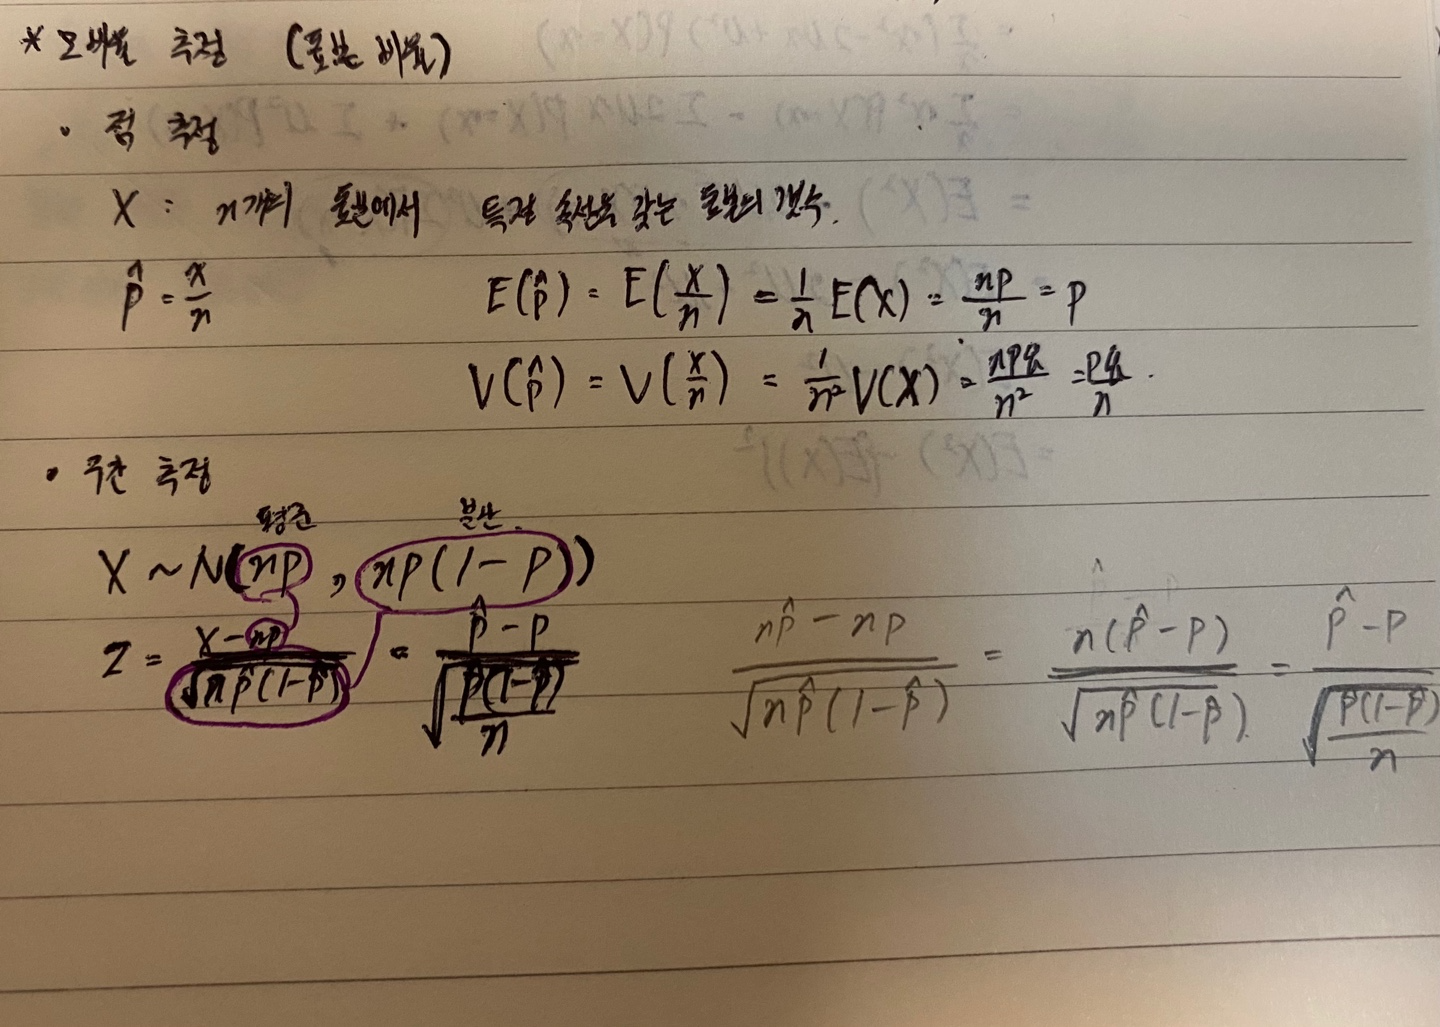 * 모비율 추정 (표본 비율)
• 점 추정
X : n개의 표본에서 특정 속성을 갖는 표본의 갯수.
p̂ = x/n E(p̂) = E(X/n) = 1/n E(X) = np/n = p
V(p̂) = V(X/n) = 1/n² V(X) = npq/n² = pq/n .
• 구간 추정
평균 분산.
X ~ N(np , np(1-p))
Z = (X-np)/√(np̂(1-p̂)) = (p̂-p)/√(p̂(1-p̂)/n) (np̂-np)/√(np̂(1-p̂)) = n(p̂-p)/√(np̂(1-p̂)) = (p̂-p)/√(p̂(1-p̂)/n)